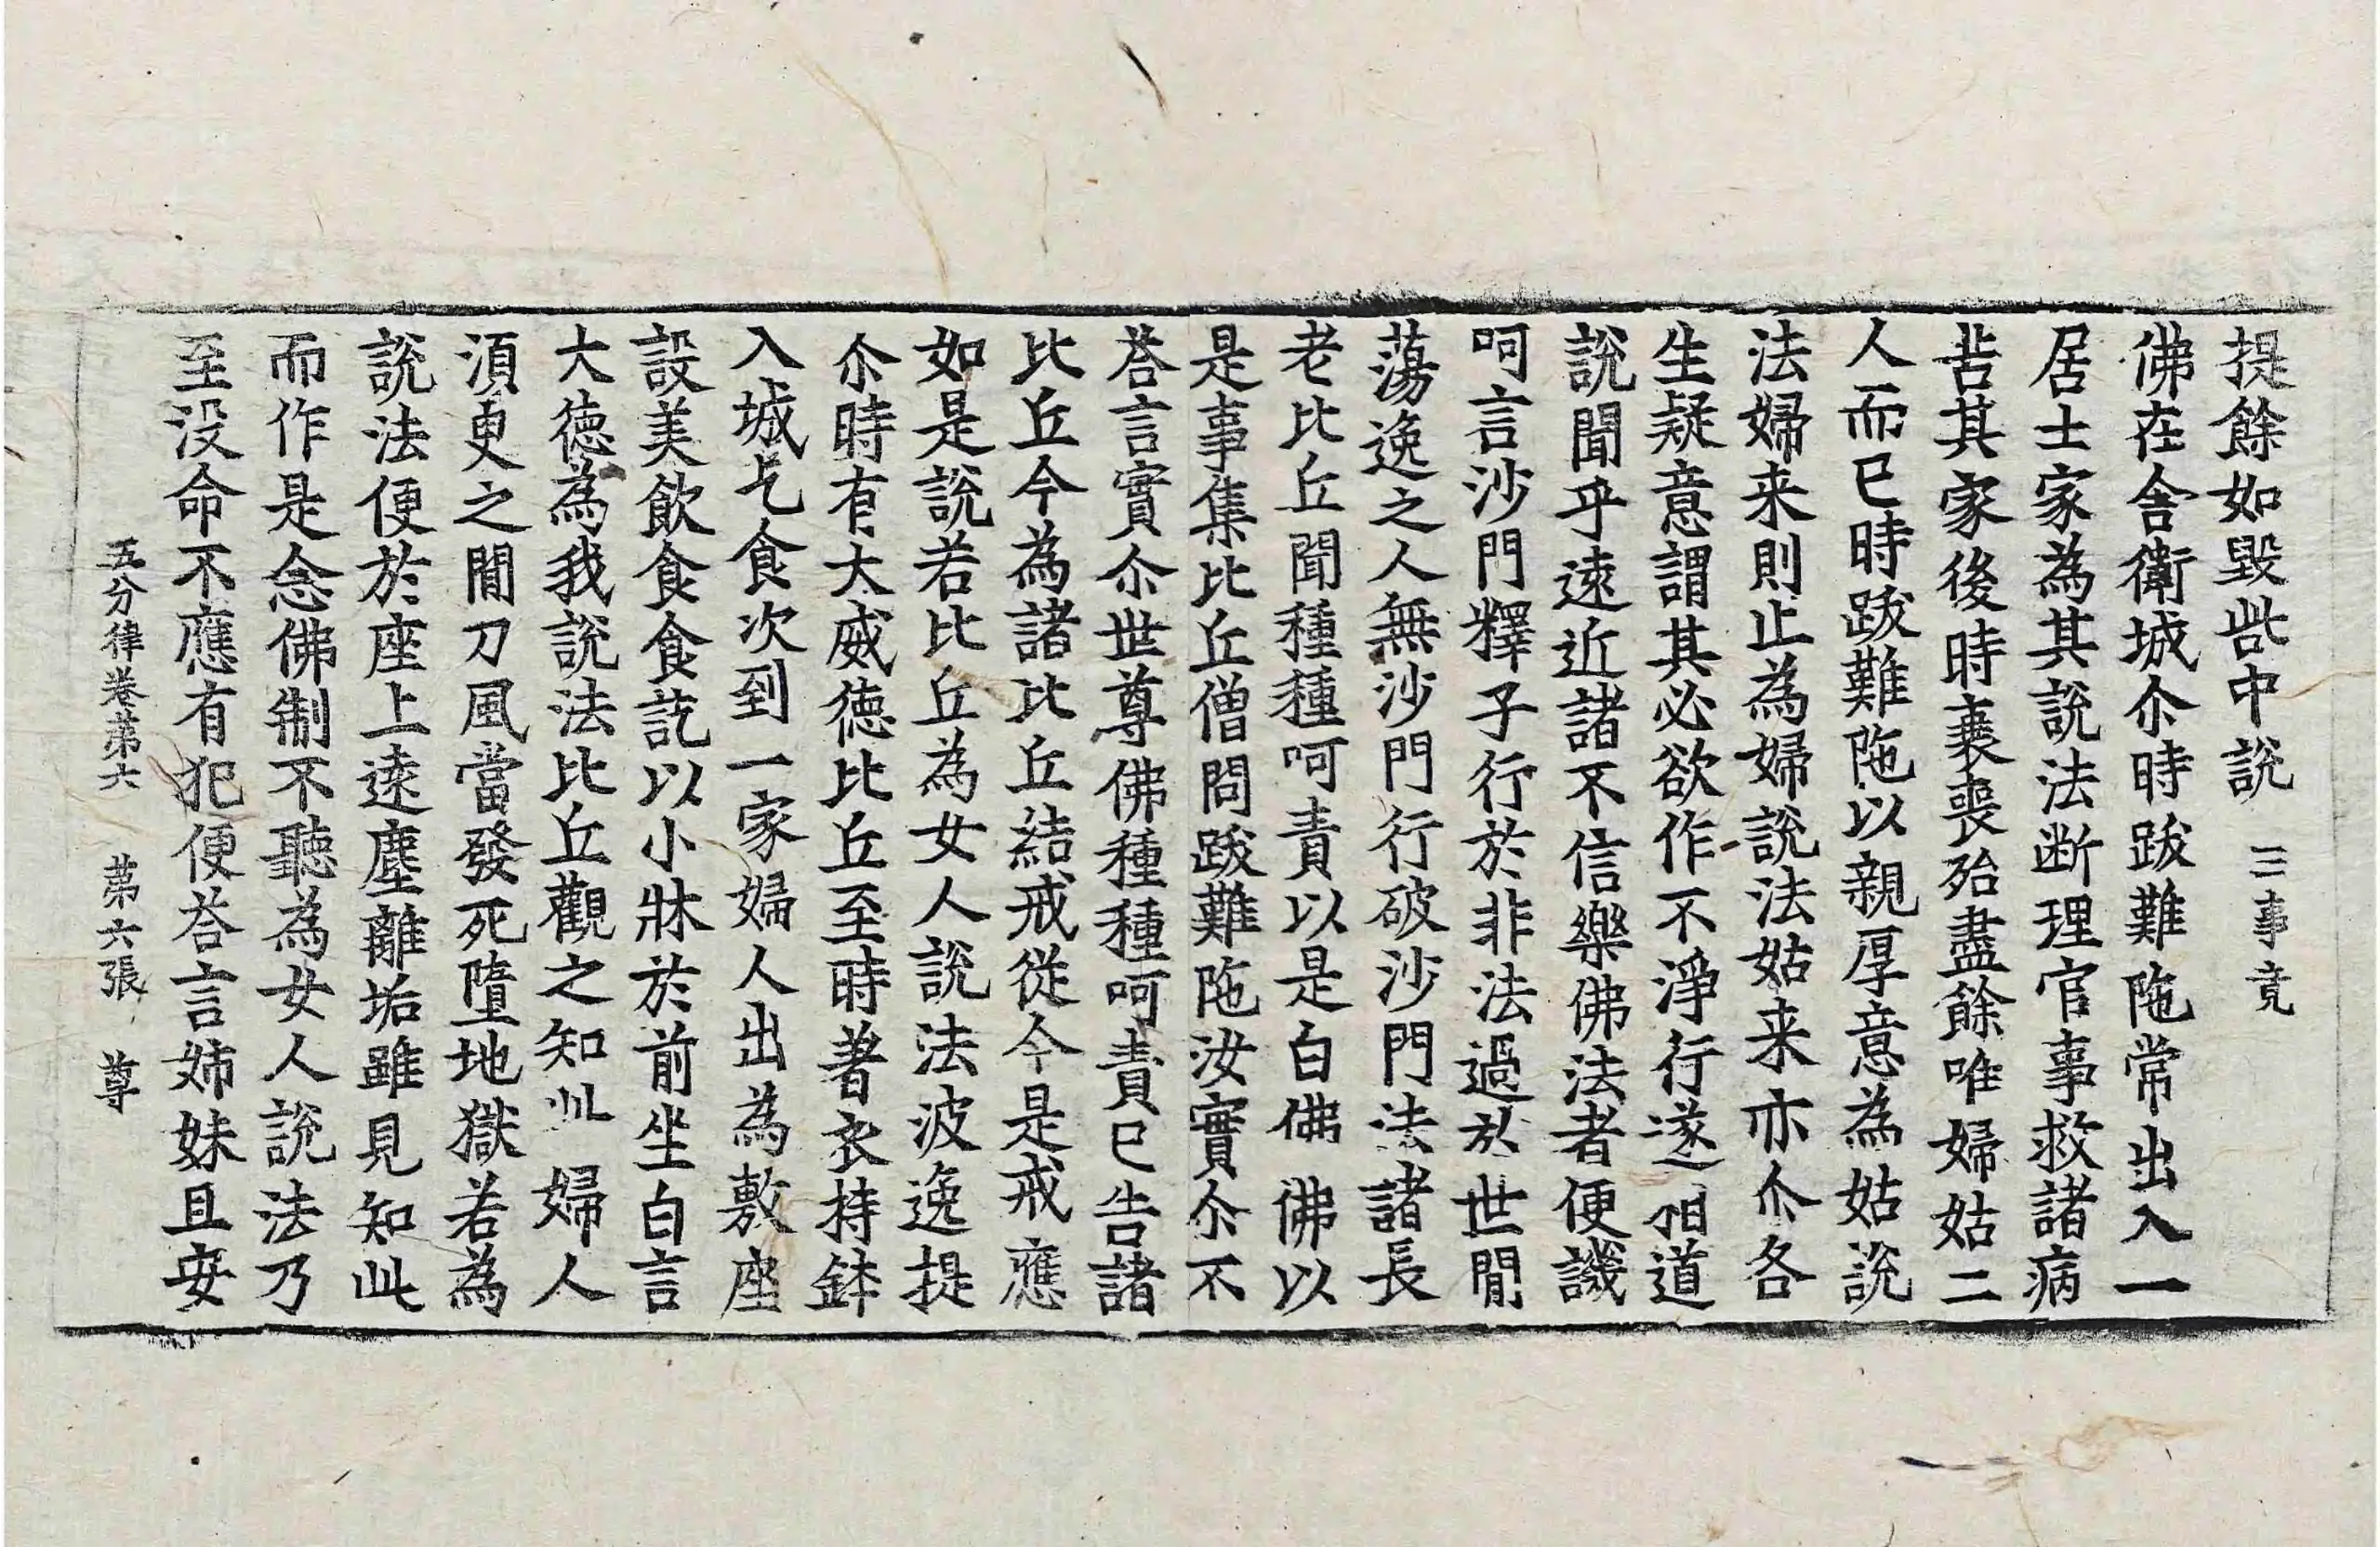 提餘如毀呰中說 三事竟
佛在舍衛城尒時跋難陁常出入一
居士家為其說法断理官事救諸病
苦其家後時衰喪殆盡餘唯婦姑二
人而已時跋難陁以親厚意為姑說
法婦来則止為婦說法姑来亦尒各
生疑意謂其必欲作不淨行遂相道
說聞乎遠近諸不信樂佛法者便譏
呵言沙門釋子行於非法過於世閒
蕩逸之人無沙門行破沙門法諸長
老比丘聞種種呵責以是白佛佛以
是事集比丘僧問跋難陁汝實尒不
荅言實尒世尊佛種種呵責已告諸
比丘今為諸比丘結戒從今是戒應
如是說若比丘為女人說法波逸提
尒時有大威德比丘至時著衣持鉢
入城乞食次到一家婦人出為敷座
設美飲食食訖以小牀於前坐白言
大德為我說法比丘觀之知此婦人
湏臾之閒刀風當發死墮地獄若為
說法便於座上遠塵離垢雖見知此
而作是念佛制不聽為女人說法乃
至没命不應有犯便荅言姊妹且安
五分律卷第六 第六張 尊